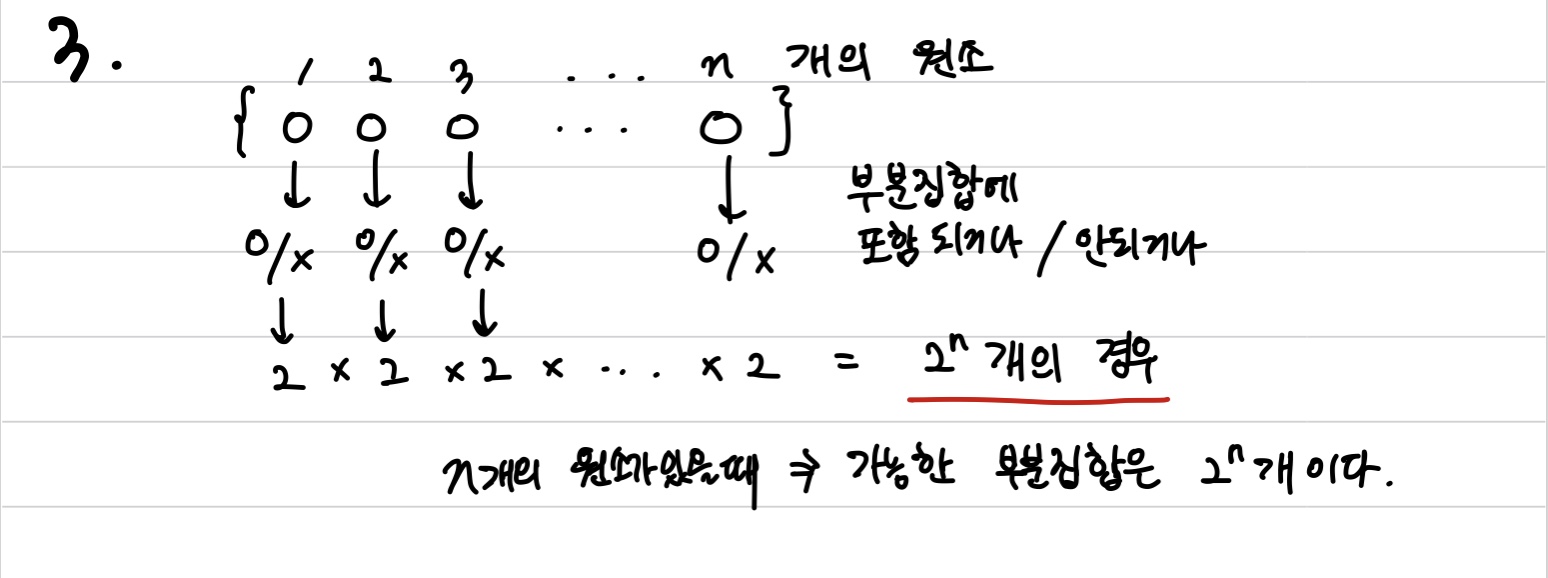 3.
1 2 3 ... n 개의 원소
{ O O O ... O }
↓ ↓ ↓ ↓
부분집합에
O/x O/x O/x O/x 포함 되거나 / 안되거나
↓ ↓ ↓
2 × 2 × 2 × ... × 2 = 2ⁿ 개의 경우
n개의 원소가 있을 때 ⇒ 가능한 부분집합은 2ⁿ개 이다.